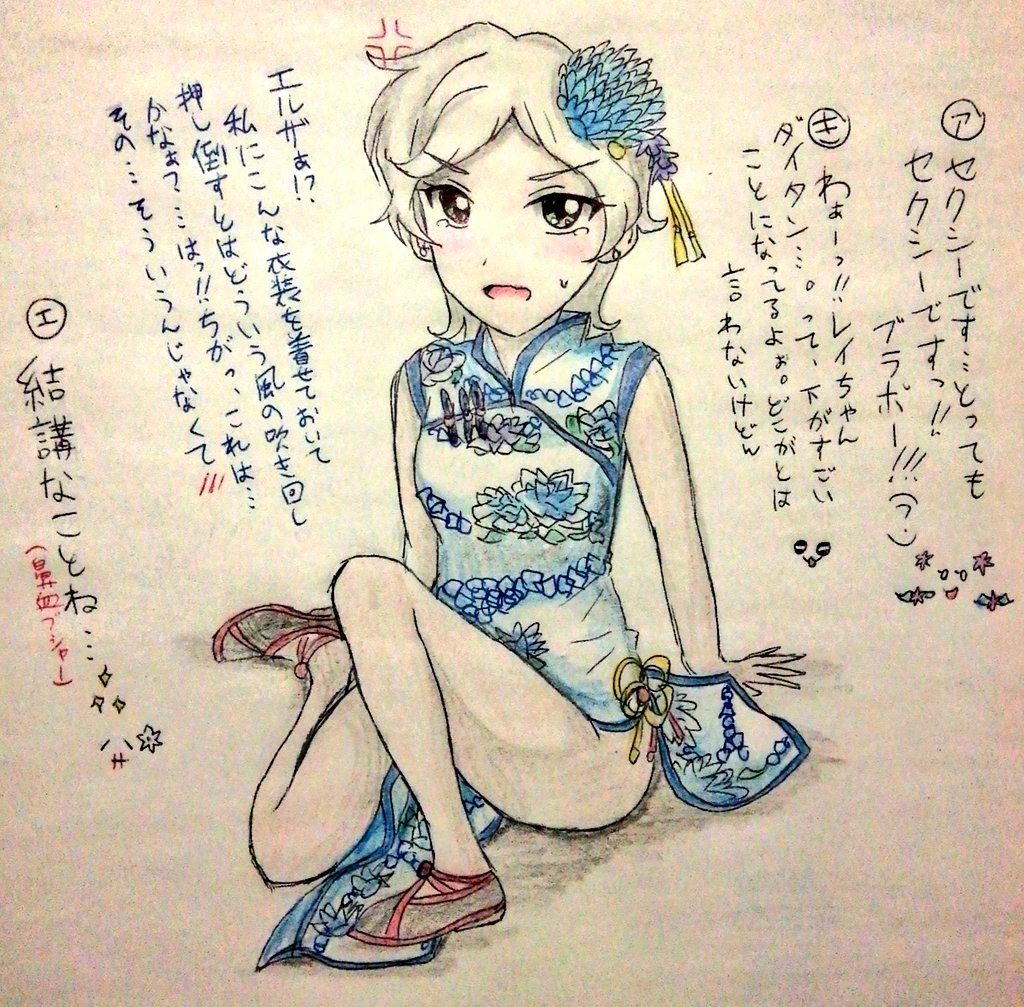 ア セクシーです…とっても
セクシーですっ!!
ブラボー!!!
キ わぁーっ!!レイちゃん
ダイタン…。って、下がすごい
ことになってるよぉ。どこがとは
言わないけどん
エルザぁ!?
私にこんな衣装を着せておいて
押し倒すとはどういう風の吹き回し
かなぁ?…はっ!!ちがっ、これは…
その…そういうんじゃなくて!!!
エ 結講なことね…
(鼻血ブシャー)